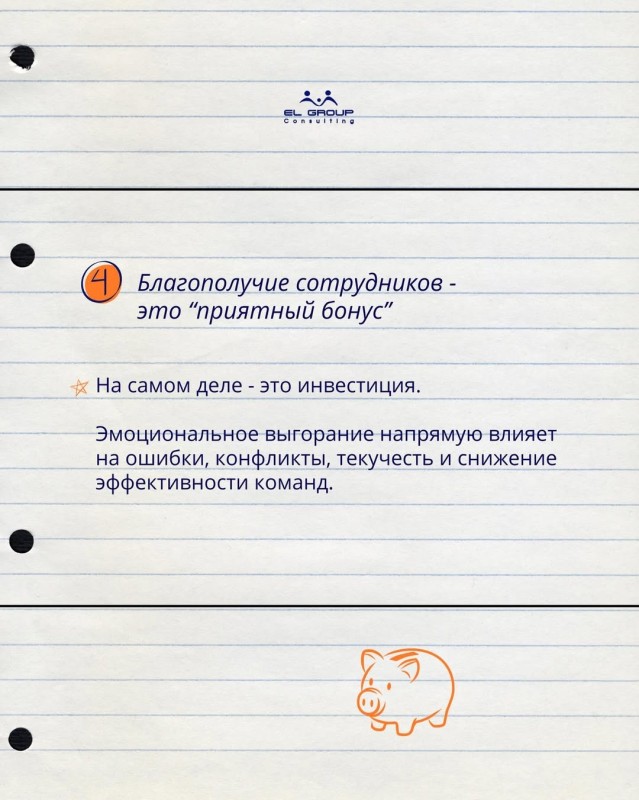 EL GROUP
Consulting
4
Благополучие сотрудников -
это “приятный бонус”
На самом деле - это инвестиция.
Эмоциональное выгорание напрямую влияет
на ошибки, конфликты, текучесть и снижение
эффективности команд.